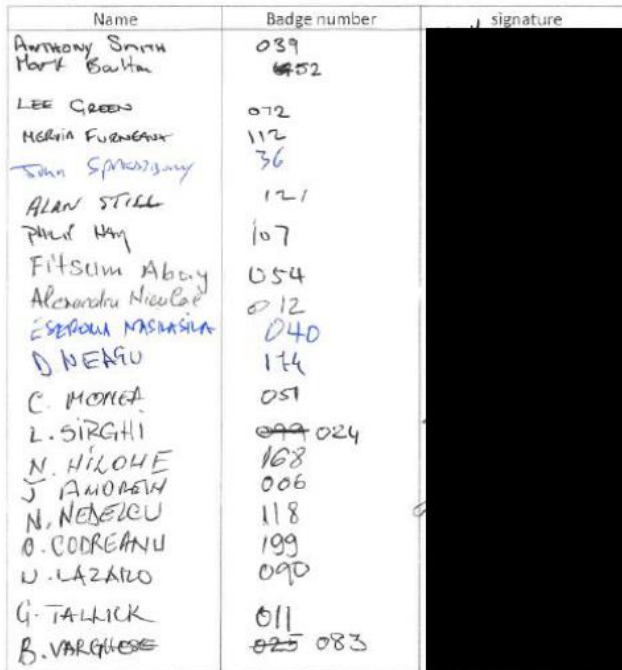 Name Badge number signature
ANTHONY SMITH 039
Mark 52
LEE GREEN 072
FURNEAUX 112
John 36
ALAN STILL 121
PHILIP HAY 107
Fitsum Abay 054
Alexandru Niculae 012
040
D NEAGU 174
C. MONEA 051
L. SIRGHI 099 024
N. 168
J 006
N. NEDELCU 118
O. CODREANU 199
N. LAZARO 090
G. TALLICK 011
B. VARGHESE 025 083